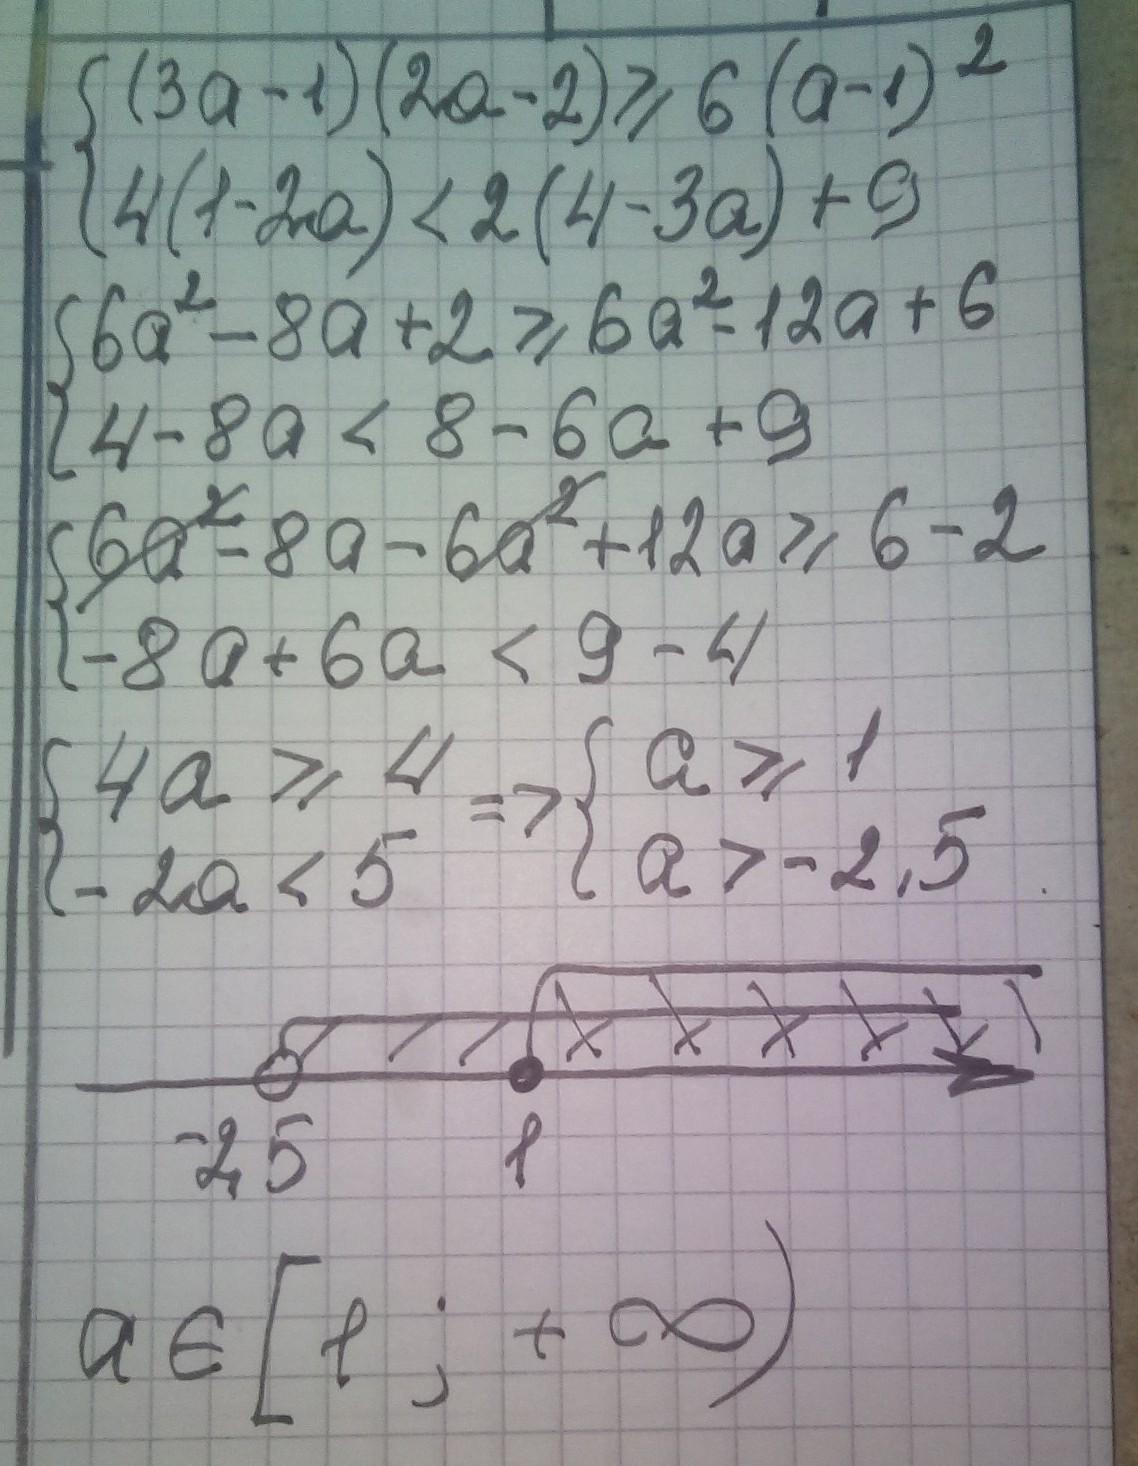 { (3a-1)(2a-2) ⩾ 6(a-1)²
4(1-2a) < 2(4-3a)+9
{ 6a²-8a+2 ⩾ 6a²-12a+6
4-8a < 8-6a+9
{ 6a²-8a-6a²+12a ⩾ 6-2
-8a+6a < 9-4
{ 4a ⩾ 4 => { a ⩾ 1
-2a < 5 a > -2,5
-2,5 1
a ∈ [1; +∞)